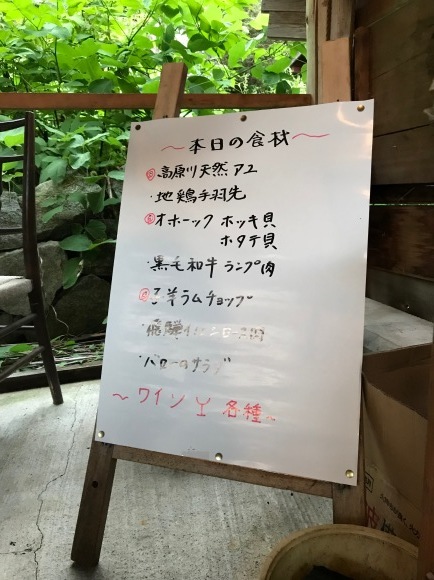 〜本日の食材〜
◎高原川天然アユ
・地鶏手羽先
◎オホーツク ホッキ貝
ホタテ貝
・黒毛和牛 ランプ肉
◎子羊ラムチョップ
・飛騨
・バローのサラダ
〜ワイン 各種〜